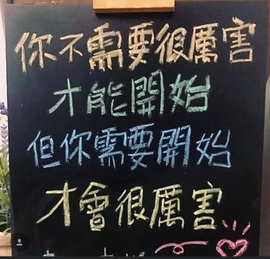 你不需要很厲害
才能開始
但你需要開始
才會很厲害